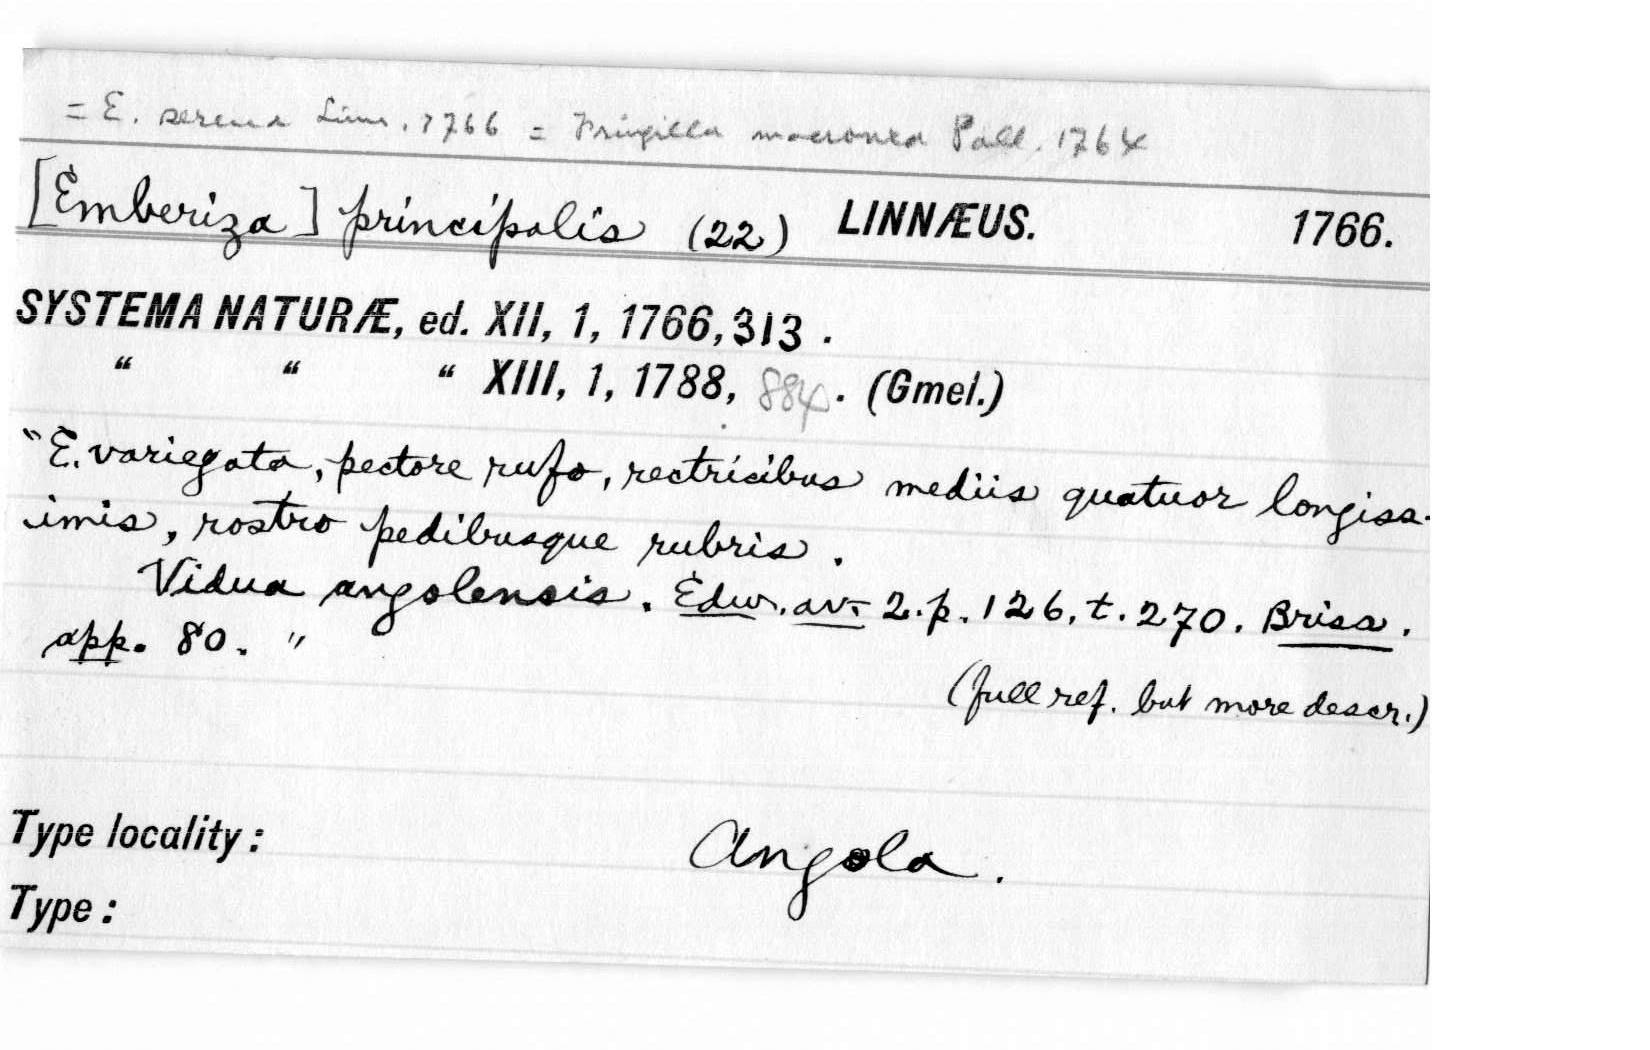 = E. serena Linn. 1766 = Fringilla macroura Pall. 1764
[Emberiza] principalis (22) LINNÆUS. 1766.
SYSTEMA NATURÆ, ed. XII, 1, 1766, 313.
" " " XIII, 1, 1788, 884. (Gmel.)
"E. variegata, pectore rufo, rectricibus mediis quatuor longiss-
imis, rostro pedibusque rubris.
Vidua angolensis. Edw. av. 2. p. 126. t. 270. Briss.
app. 80."
(full ref. but more descr.)
Type locality: Angola.
Type: